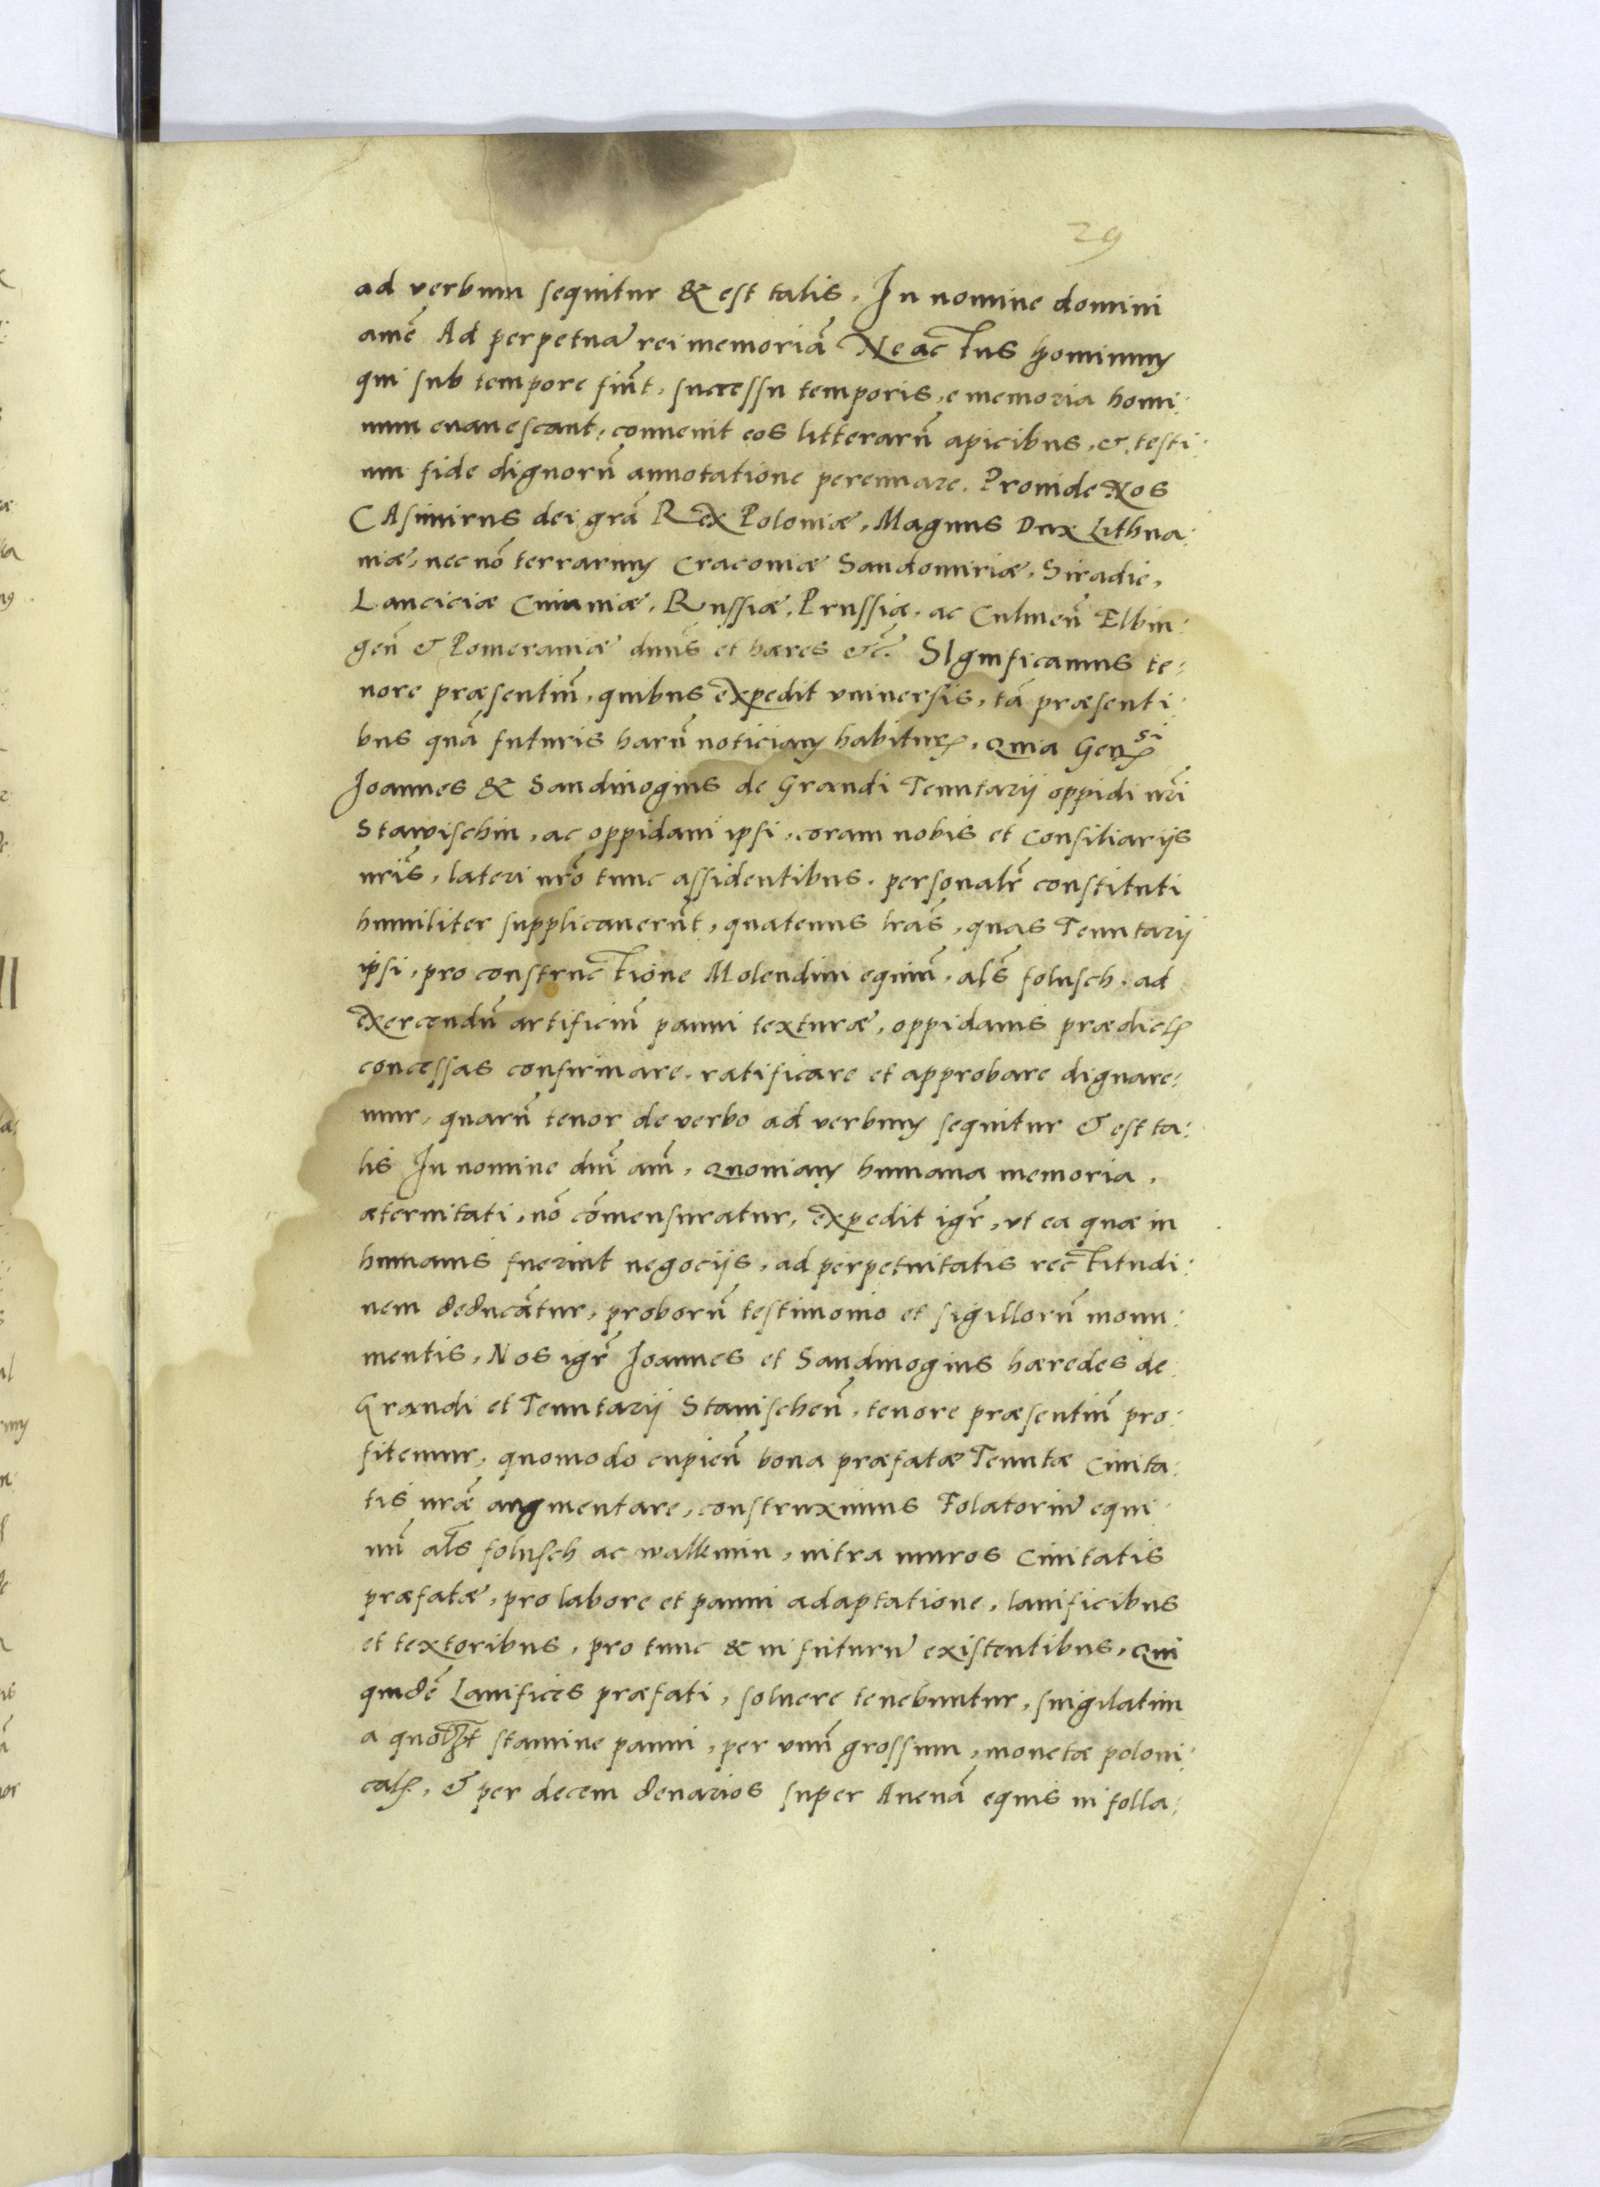 29
ad verbum sequitur & est talis. In nomine domini
amē Ad perpetuā rei memoriā Ne actus hominum
qui sub tempore fiūt, successu temporis, e memoria homi:
num evanescant, convenit eos litterarū apicibus, & testi:
um fide dignorū annotatione perennare. Proinde Nos
CAsimirus dei grā Rex Poloniæ, Magnus Dux Lithua:
niæ, nec nō terrarum Cracoviæ Sandomiriæ, Siradie,
Lanciciæ Cuiaviæ, Russiæ, Prussiæ, ac Culmeñ Elbin:
geñ & Pomeraniæ dnūs et hæres &c̄. SIgnificamus te:
nore præsentiū, quibus expedit universis, tā præsenti:
bus quā futuris harū noticiam habituꝝ. Quia Geņsi
Joannes & Sandivogius de Grandi Tenutarij oppidi nr̄i
Stawischin, ac oppidani ipsi, coram nobis et Consiliarijs
nr̄is, lateri nr̄o tunc assidentibus, personalr̄ constituti
humiliter supplicaverūt, quatenus lr̄as, quas Tenutarij
ipsi, pro constructione Molendini equinū, al̄s folusch, ad
exercendū artificiū panni texturæ, oppidanis prædictꝭ
concessas confirmare, ratificare et approbare dignare:
mur, quarū tenor de verbo ad verbum sequitur & est ta:
lis In nomine dnī am̄. Quoniam humana memoria,
æternitati, nō cōmensuratur, expedit igr̄, ut ea quæ in
humanis fuerint negocijs, ad perpetuitatis rectitudi:
nem deducātur, proborū testimonio et sigillorū monu:
mentis, Nos igr̄ Joannes et Sandivogius hæredes de
Grandi et Tenutarij Stawischeñ, tenore præsentiū pro:
fitemur, quomodo cupieñ bona præfatæ Tenutæ Civita:
tis nr̄æ augmentare, construximus Folatoriū equi:
nū al̄s folusch ac walkmin, intra muros Civitatis
præfatæ, pro labore et panni adaptatione, lanificibus
et textoribus, pro tunc & in futurū existentibus, Qui
quidē Lanifices præfati, solvere tenebuntur, singilatim
a quolꝫt stamine panni, per unū grossum, monetæ poloni:
calꝭ, & per decem denarios super Avenā equis in folla: